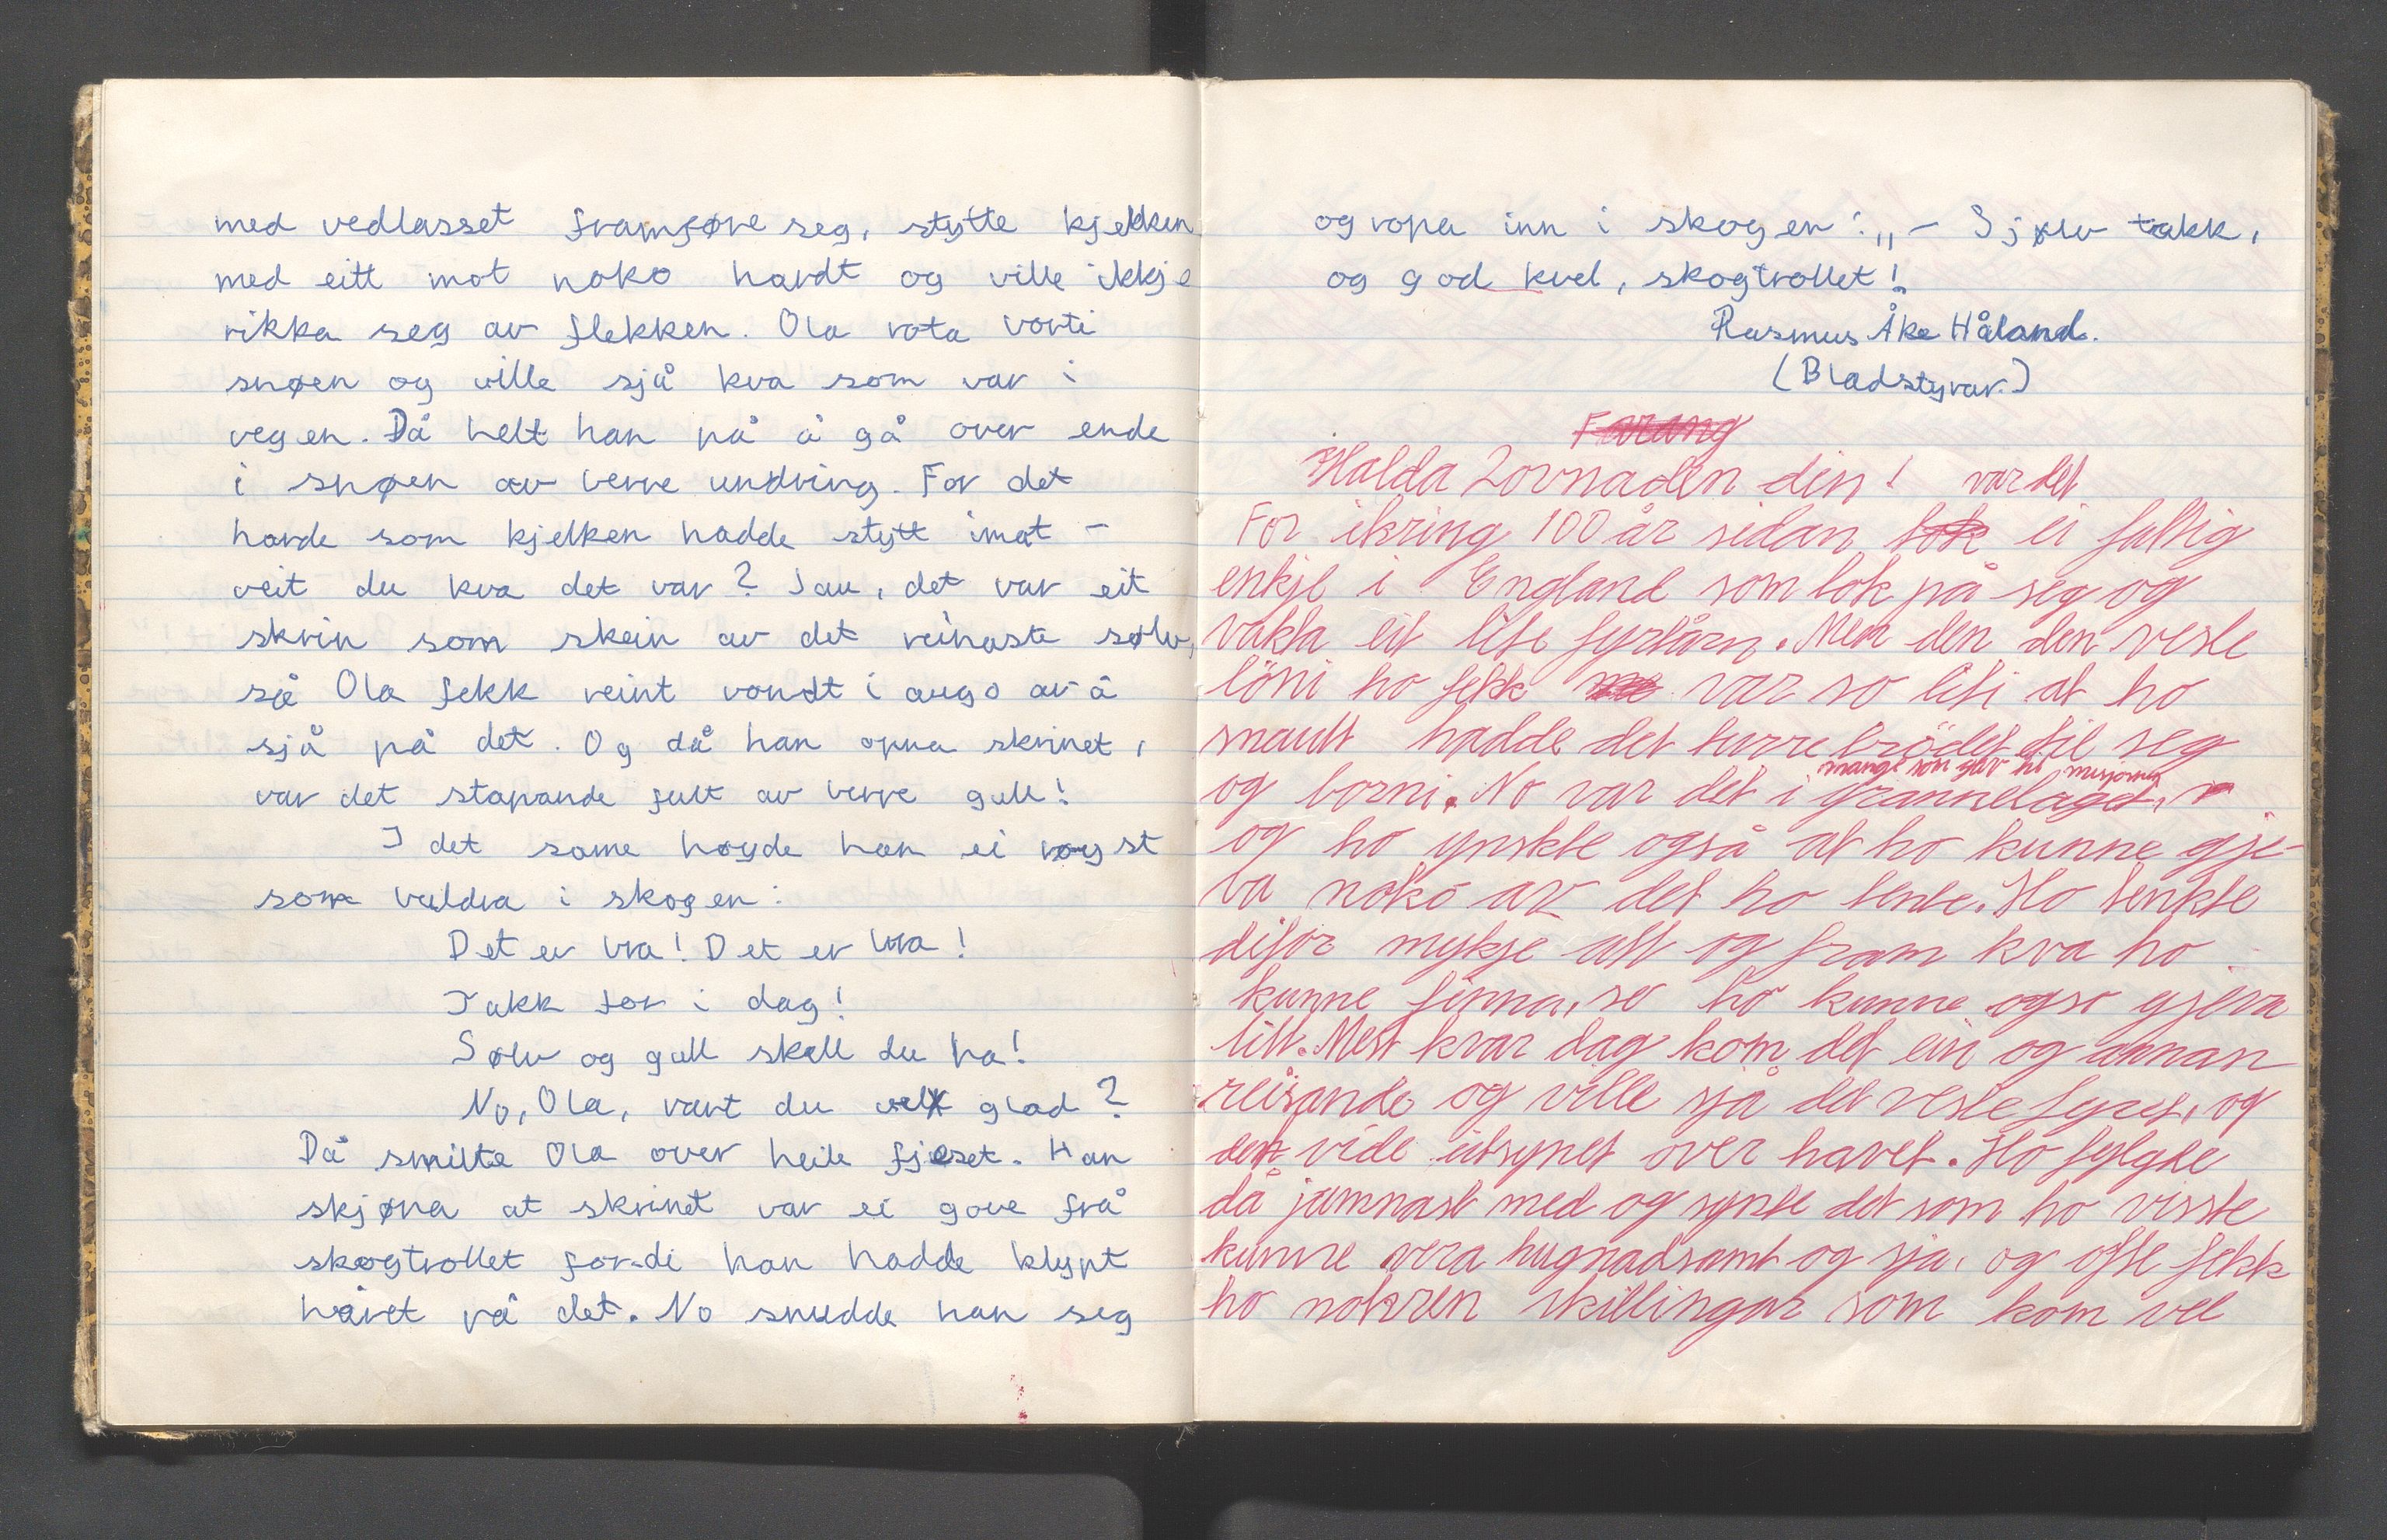 med vedlasset framføre seg, støtte kjelken
med eitt mot noko hardt og ville ikkje
rikka seg av flekken. Ola rota borti
snøen og ville sjå kva som var i
vegen. Då helt han på å gå over ende
i snøen av berre undring. For det
harde som kjelken hadde støtt imot -
veit du kva det var? Jau, det var eit
skrin som skein av det reinaste sølv,
så Ola fekk reint vondt i augo av å
sjå på det. Og då han opna skrinet,
var det stapande fult av berre gull!
I det same høyde han ei røyst
som buldra i skogen:
Det er bra! Det er bra!
Takk for i dag!
Sølv og gull skall du ha!
No, Ola, vart du vel glad?
Då smilte Ola over heile fjeset. Han
skjøna at skrinet var ei gove frå
skogtrollet for-di han hadde klypt
håret på det. No snudde han seg
og ropa inn i skogen: „- Sjølv takk,
og god kvel, skogtrollet!
Rasmus Åke Håland.
(Bladstyrar.)
Farang
Halda Lovnaden din! var det
For ikring 100 år sidan tok ei fattig
enkje i England som tok på seg og
vakta eit lite fyrtårn. Men den den vesle
löni ho fekk var so liti at ho
snaudt hadde det turre brödet til seg
mange som gav til misjonen
og borni. No var det i grannelaget,
og ho ynskte også at ho kunne gje-
va noko av det ho tente. Ho tenkte
difor mykje att og fram kva ho
kunne finna, so ho kunne ogso gjeva
litt. Mest kvar dag kom det ein og annan
reisande og ville sjå det vesle fyret, og
det vide utsynet over havet. Ho fylgde
då jamnast med og synte det som ho visste
kunne vera hugnadsamt og sja, og ofte fekk
ho nokren skillingar som kom vel